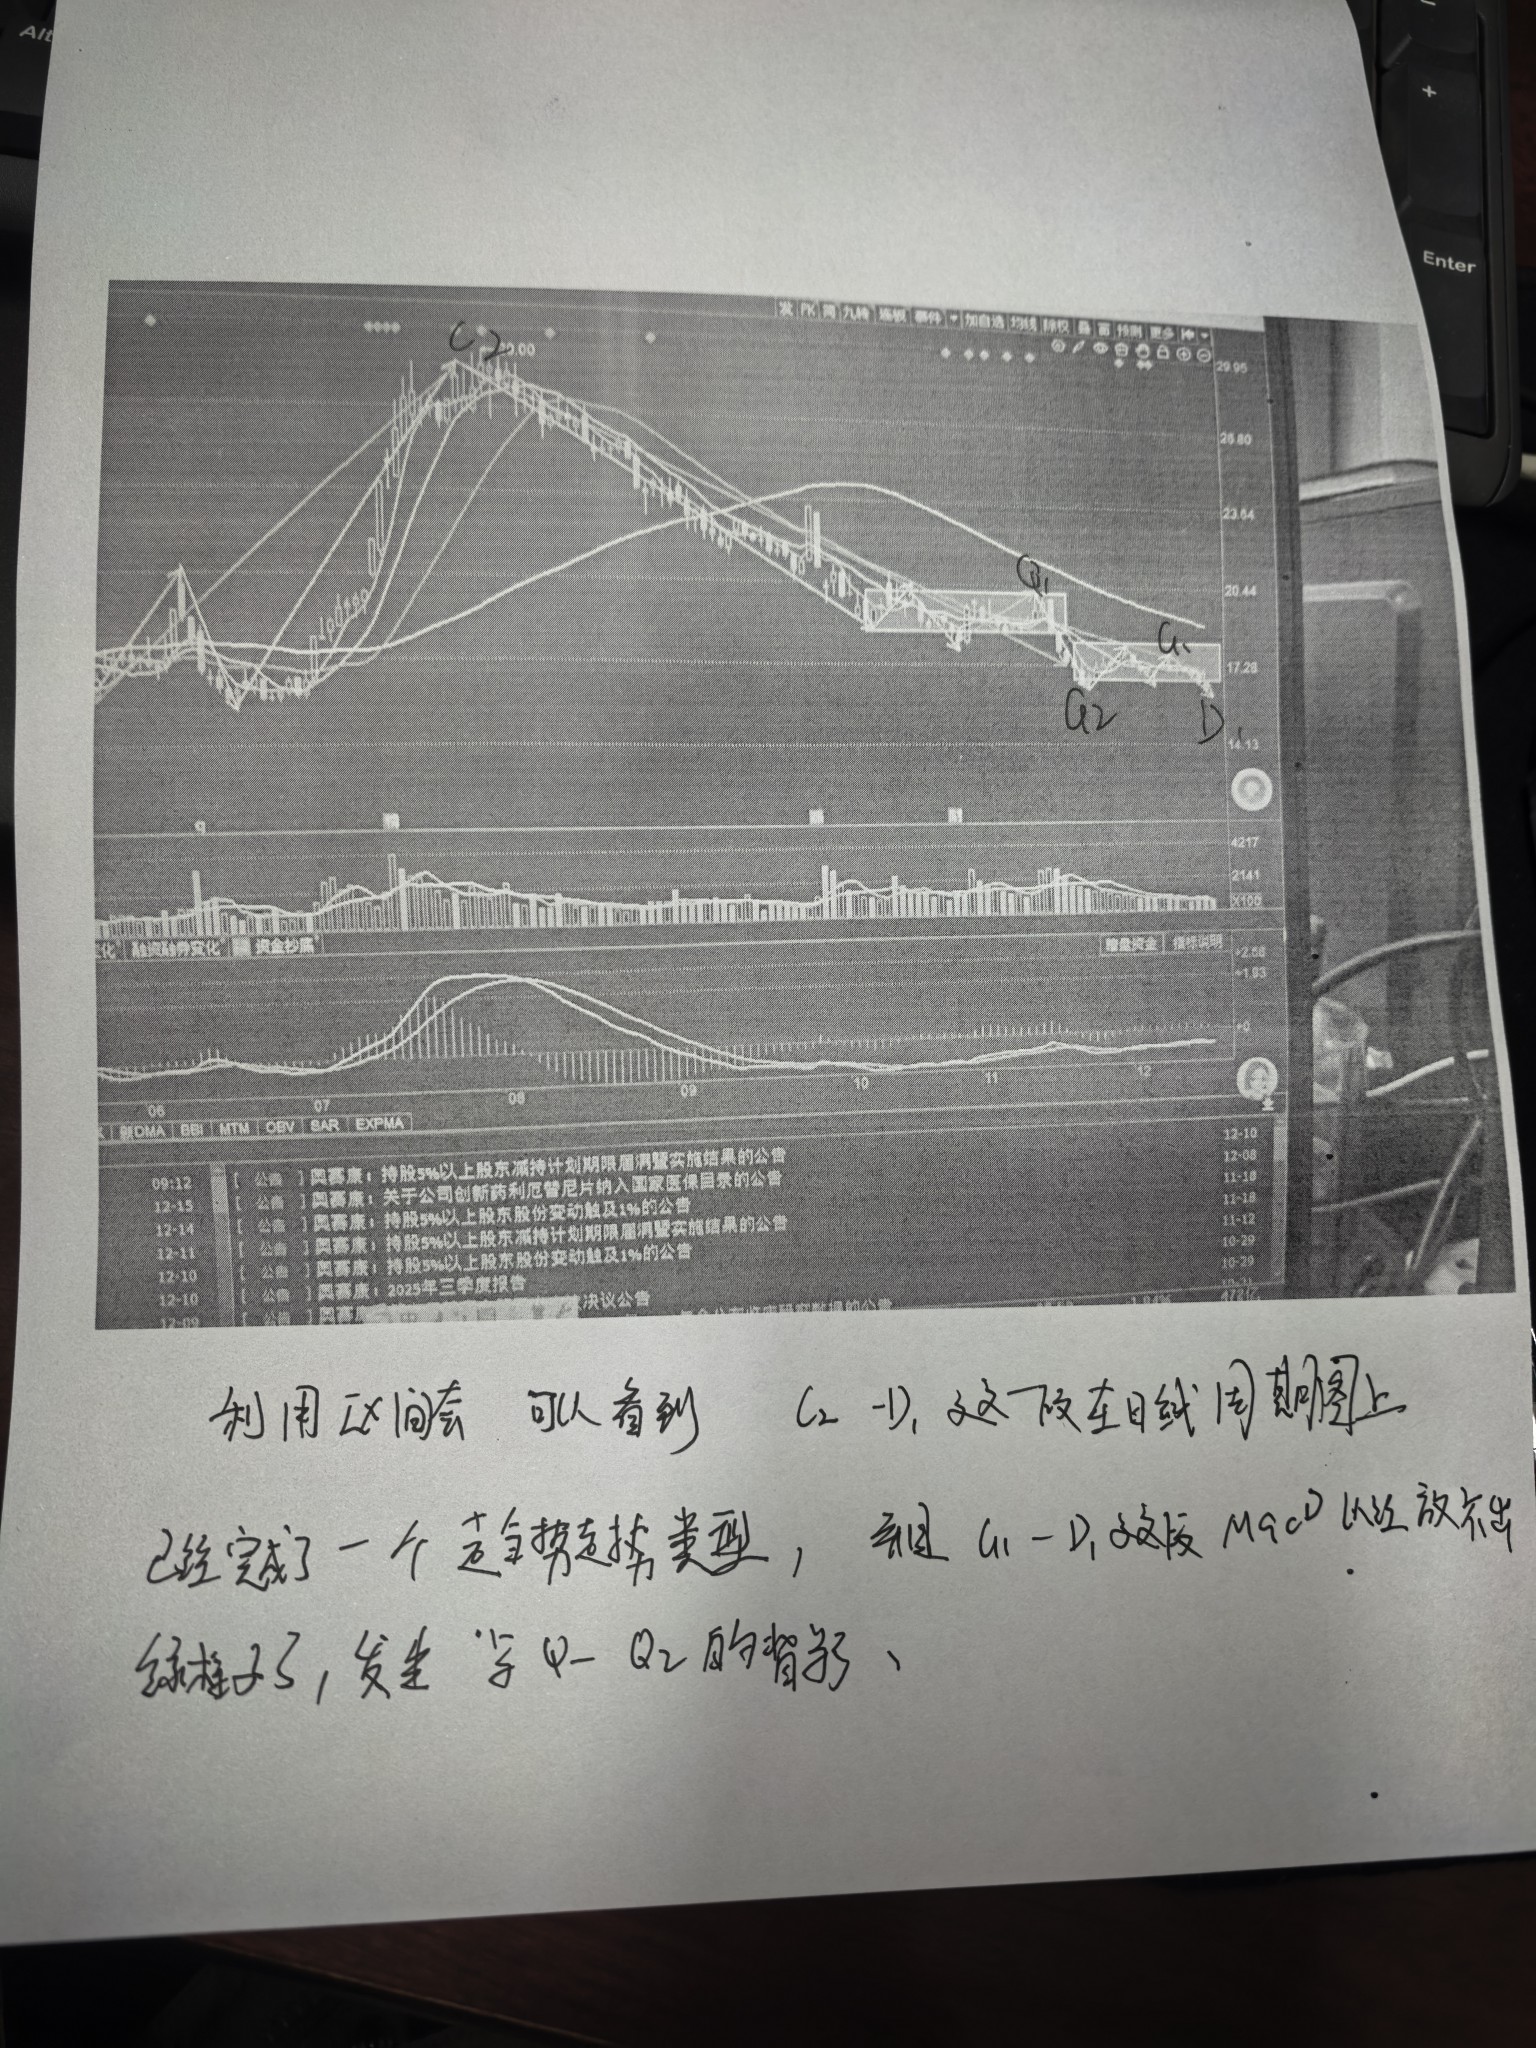 Alt
+
Enter
C2
30.00
发 PK 简 九转 炼板 事件 加自选 均线 除权 叠 画 预测 更多
29.95
26.80
23.64
20.44
17.28
14.13
Q1
G1
Q2
D1
4217
2141
X100
融资融券变化 资金抄底
指标说明
+2.58
+1.93
+0
06 07 08 09 10 11 12
新DMA BBI MTM OBV SAR EXPMA
09:12 [ 公告 ] 奥赛康：持股5%以上股东减持计划期限届满暨实施结果的公告 12-10
12-15 [ 公告 ] 奥赛康：关于公司创新药利厄替尼片纳入国家医保目录的公告 12-08
12-14 [ 公告 ] 奥赛康：持股5%以上股东股份变动触及1%的公告 11-18
12-11 [ 公告 ] 奥赛康：持股5%以上股东减持计划期限届满暨实施结果的公告 11-18
12-10 [ 公告 ] 奥赛康：持股5%以上股东股份变动触及1%的公告 11-12
12-10 [ 公告 ] 奥赛康：2025年三季度报告 10-29
12-09 [ 公告 ] 奥赛 决议公告 10-29
利用区间套 可以看到 C2-D1 这一段在日线周期图上
已经完成了一个趋势走势类型，并且 G1-D1这段 MACD 已经放不出
绿柱子了，发生 与 Q1-Q2 的背驰、